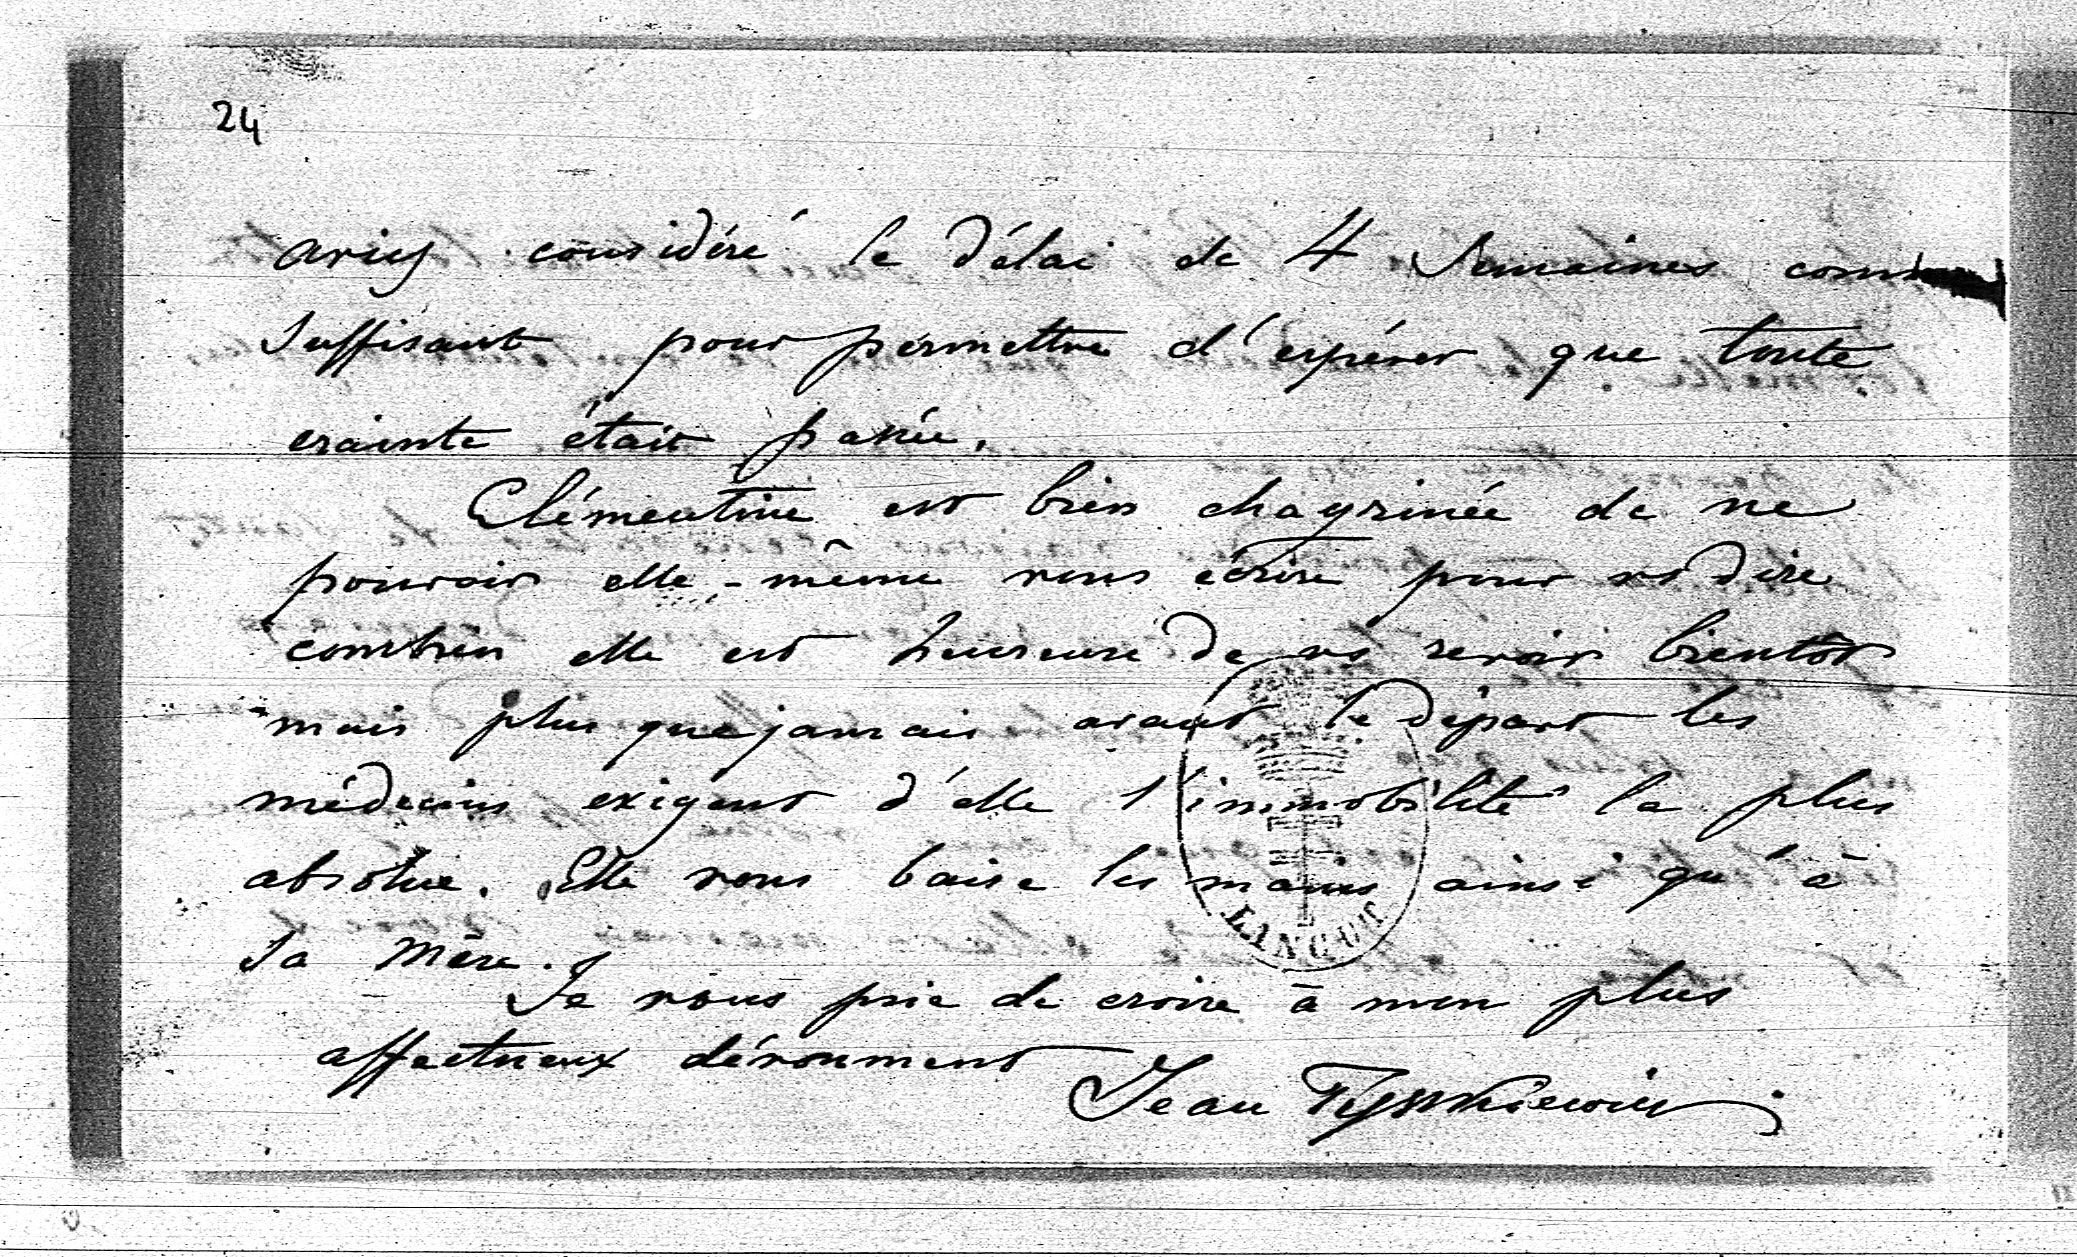 24
aviez considéré le délai de 4 Semaines comme
suffisant pour permettre d'espérer que toute
crainte était passée.
Clémentine est bien chagrinée de ne
pouvoir elle-même vous écrire pour vs dire
combien elle est heureuse de vs revoir bientôt
mais plus que jamais avant le départ les
médecins exigent d'elle l'immobilité la plus
absolue. Elle vous baise les mains ainsi qu'à
sa mère.
Je vous prie de croire à mon plus
affectueux dévoument
Jean Tyszkiewicz